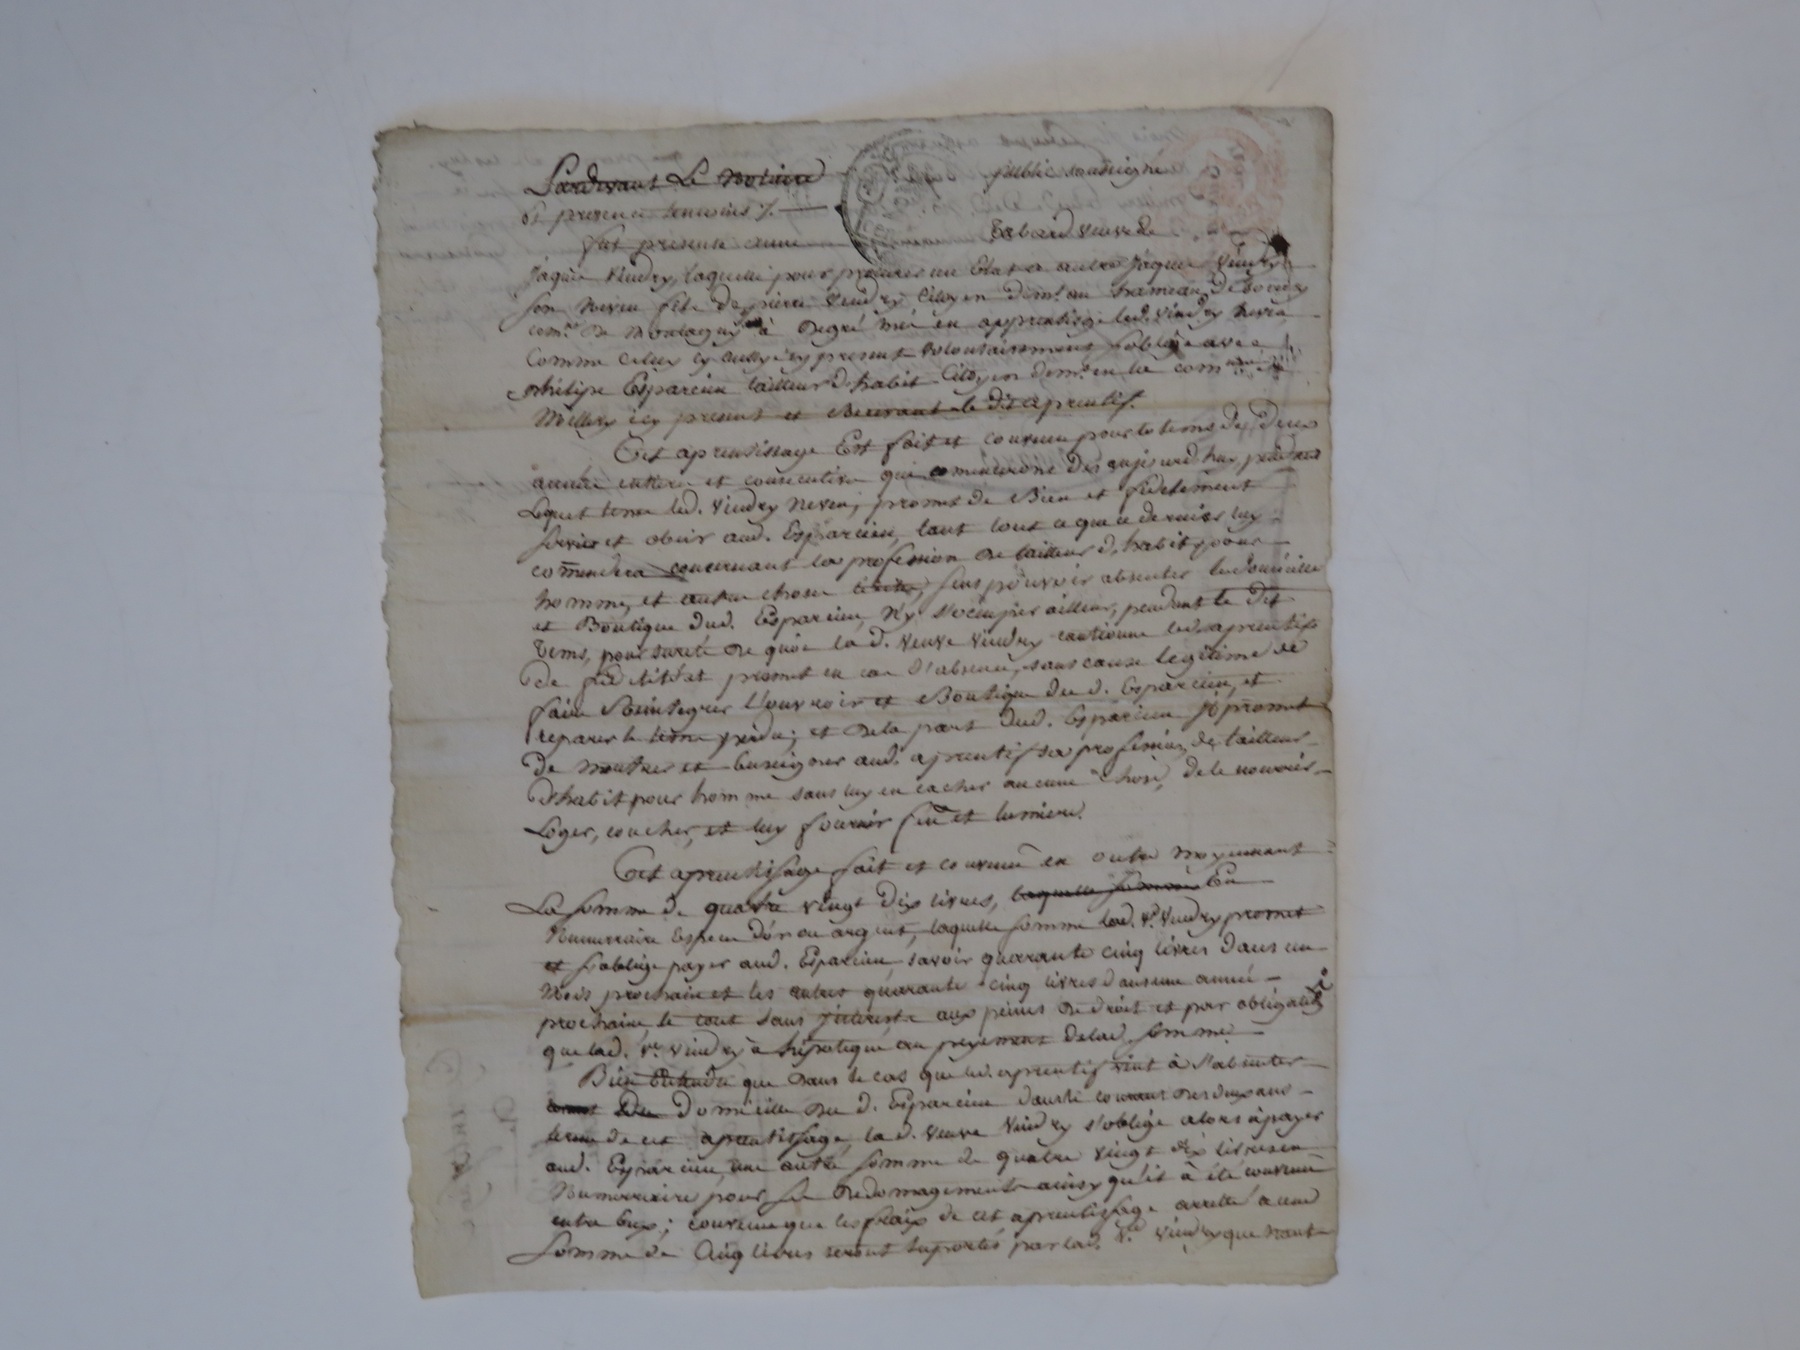 Pardevant Le Notaire public soussigné
et presence temoins /.
fut presente anne Bobard veuve de
Jaque Vindry, laquelle pour procurer un Etat a autre Jaque Vindry
son neveu fils de pierre Vindry Citoyen demt. au hameau de
comne. de Montagny à degré mis en apprentissage led. Vindry neveu
Comme celui cy aussy icy present volontairement s'oblige avec
philipe Esparcieu tailleur d'habit Citoyen demt. en la comune de
Millery icy present et recevant le dit aprentif.
Cet aprentissage Est fait et convenu pour le tems de deux
année entiere et consecutive qui comenceront des aujourd'huy pendant
Lequel tems led. Vindry neveu, promet de Bien et fidelement
servir et obeir aud. Esparcieu, tant tout ce que ce dernier luy
commendera concernant la profession de tailleur d'habit pour
homme, et autre chose licite, sans pouvoir absenter le domicile
et Boutique dud. Esparcieu, n'y s'occuper ailleur, pendant le dit
tems, pour sureté de quoi la d. veuve Vindry cautionne led. aprentif
de fidelité et promet en cas d'absence, sans cause legitime de
faire Reintegrer l'ouvroir et Boutique du d. Esparcieu, et
reparer le tems perdu; et de la part dud. Esparcieu il promet
de montrer et enseigner aud. aprentif sa profession de tailleur
d'habit pour homme sans luy en cacher aucune chose, de le nourir
Loger, coucher, et luy fournir feu et lumiere.
Cet aprentissage fait et convenu en outre moyennant
La somme de quatre vingt dix livres, laquelle somme En
Numerraire Espece d'or ou argent, laquelle somme lad. ve. Vindry promet
et s'oblige payer aud. Esparcieu savoir quarante cinq livres dans un
Mois prochain et les autres quarante cinq livres dans une année
prochaine, le tout sans jnterest aux peines de droit et par obligation
que lad. ve. Vindry à hipotequé au preyement de lad. somme
Bien Entendu que dans le cas que led. aprentif vint à s'absenter
Du Domicille du d. Esparcieu dans le courant des deux ans
terme de cet aprentissage, la d. veuve Vindry s'oblige alors à payer
aud. Esparcieu, une autre somme de quatre vingt dix livres en
Numerraire pour de dedomagement ainsy qu'il à été convenu
entre Eux; convenu que les fraix de cet aprentissage arretté a une
somme de Cinq livres seront suportés par lad. ve. Vindry que